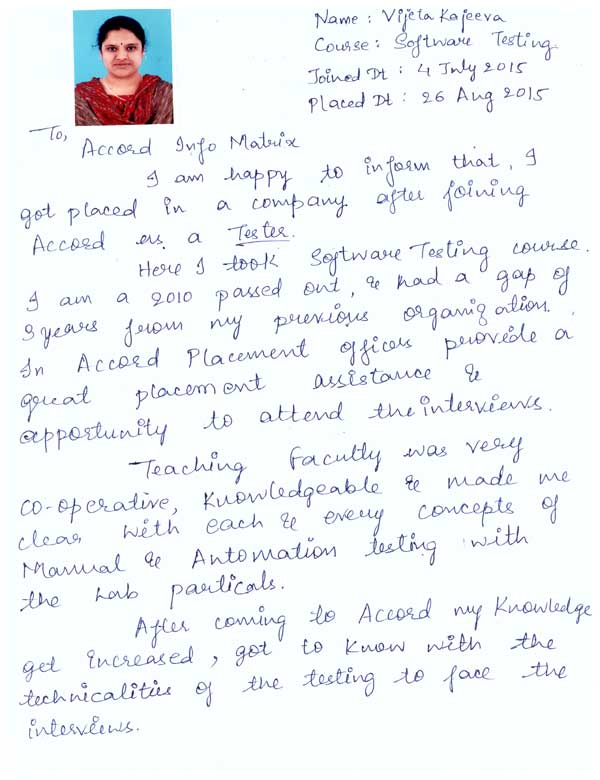 Name : Vijeta Kajeeva
Course : Software Testing
Joined Dt : 4 July 2015
Placed Dt : 26 Aug 2015
To,
Accord Info Matrix
I am happy to inform that, I
got placed in a company after joining
Accord as a Tester.
Here I took Software Testing course.
I am a 2010 passed out, & had a gap of
3 years from my previous organization.
In Accord Placement officer provide a
great placement assistance &
opportunity to attend the interviews.
Teaching Faculty was very
co-operative, Knowledgeable & made me
clear with each & every concepts of
Manual & Automation testing with
the Lab particals.
After coming to Accord my Knowledge
get increased, got to know with the
technicalities of the testing to face the
interviews.